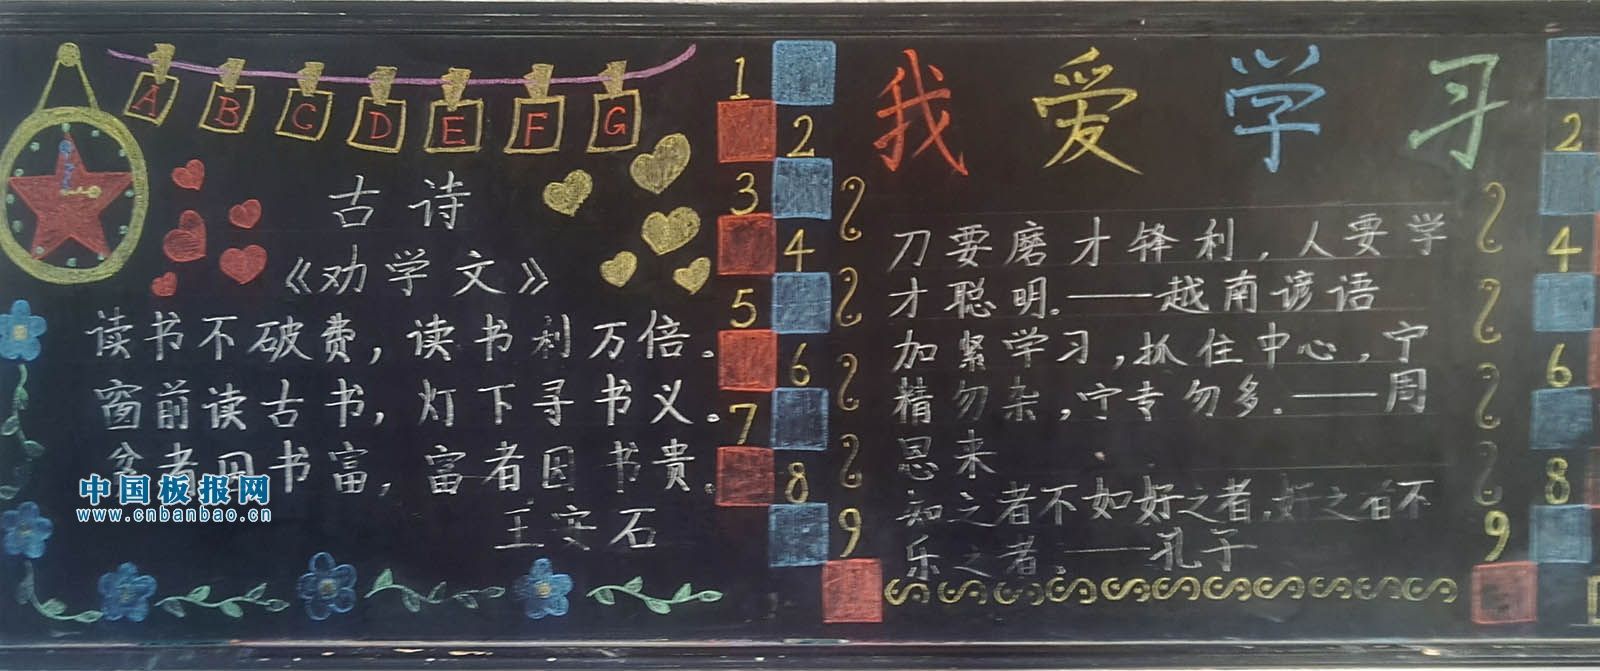 A B C D E F G
古诗
《劝学文》
读书不破费，读书利万倍。
窗前读古书，灯下寻书义。
贫者因书富，富者因书贵。
王安石
中国板报网
www.cnbanbao.cn
1
2
3
4
5
6
7
8
9
我爱学习
刀要磨才锋利，人要学
才聪明。——越南谚语
加紧学习，抓住中心，宁
精勿杂，宁专勿多。——周
恩来
知之者不如好之者，好之者不
乐之者。——孔子
2
4
6
8
9